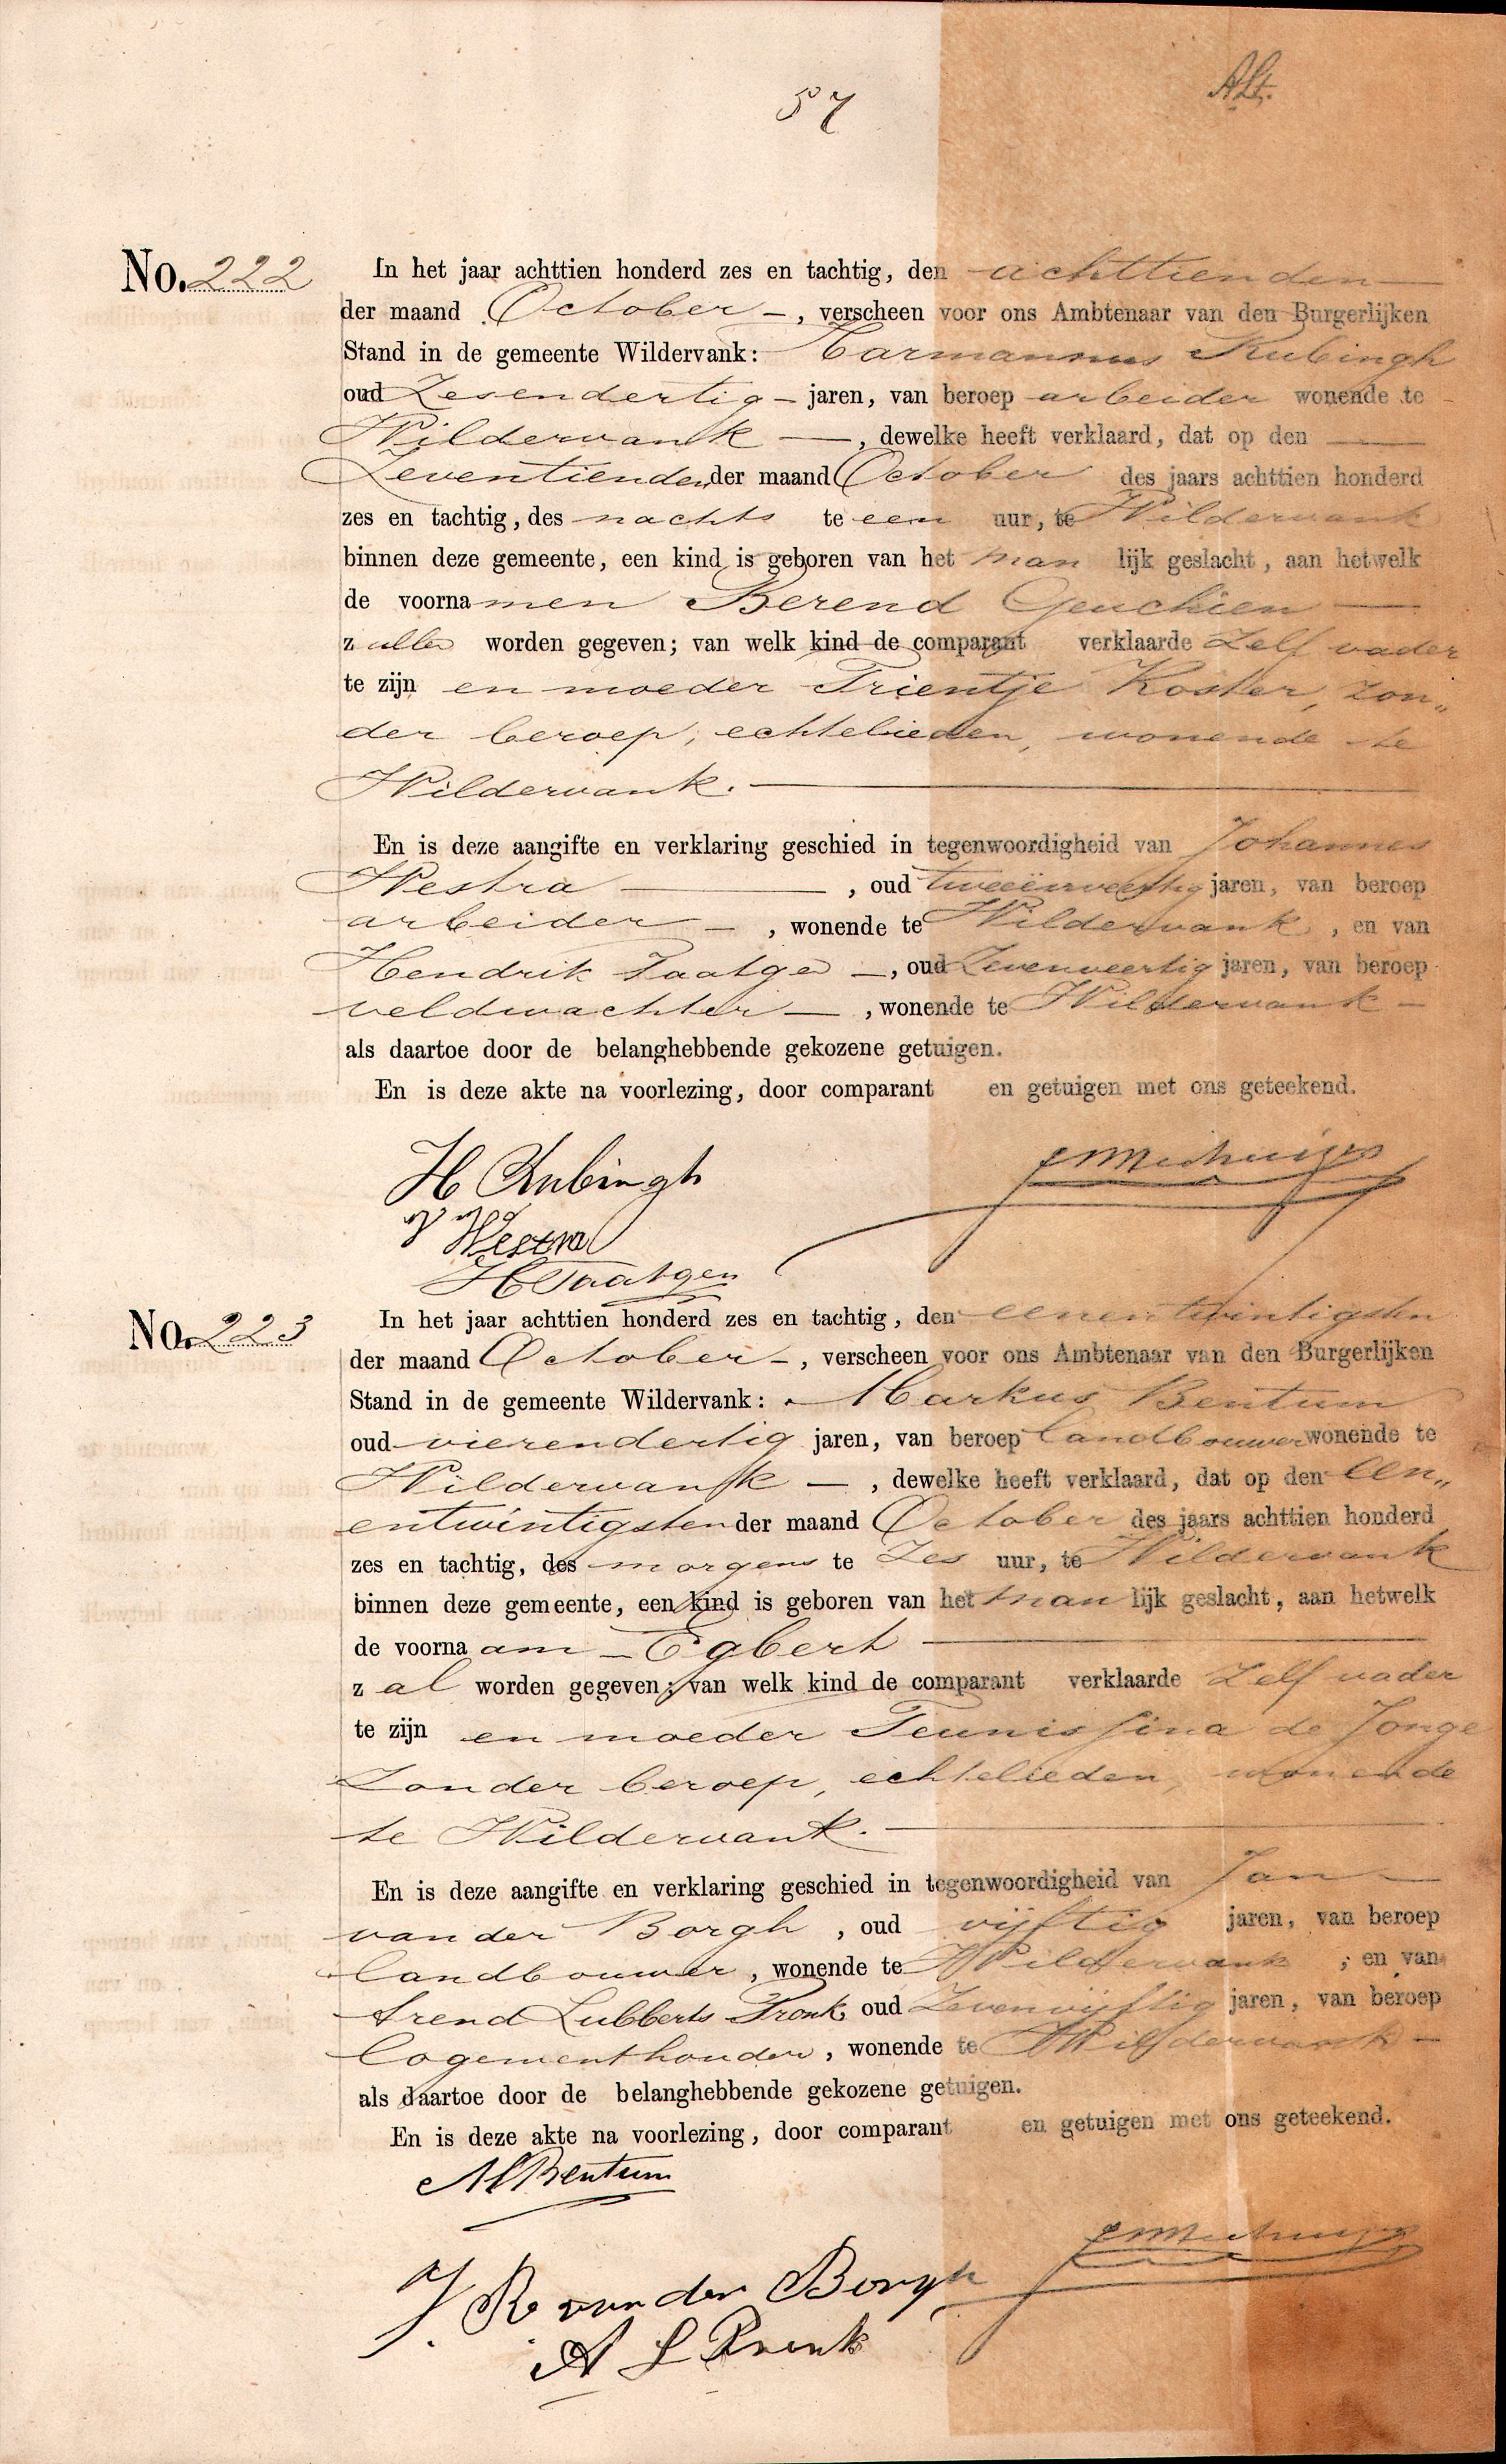 57
Alt.
No. 222
In het jaar achttien honderd zes en tachtig, den achttienden
der maand October —, verscheen voor ons Ambtenaar van den Burgerlijken
Stand in de gemeente Wildervank: Harmannus Rubingh
oud Zesendertig — jaren, van beroep arbeider wonende te
Wildervank —, dewelke heeft verklaard, dat op den —
Zeventienden der maand October des jaars achttien honderd
zes en tachtig, des nachts te een uur, te Wildervank
binnen deze gemeente, een kind is geboren van het man lijk geslacht, aan hetwelk
de voorna men Berend Geuchien —
z ullen worden gegeven; van welk kind de comparant verklaarde Zelf vader
te zijn en moeder Trientje Koster, zon„
der beroep, echtelieden, wonende te
Wildervank. —
En is deze aangifte en verklaring geschied in tegenwoordigheid van Johannes
Westra —, oud tweeënveertig jaren, van beroep
arbeider —, wonende te Wildervank, en van
Hendrik Taatgen —, oud Zevenveertig jaren, van beroep
veldwachter —, wonende te Wildervank —
als daartoe door de belanghebbende gekozene getuigen.
En is deze akte na voorlezing, door comparant en getuigen met ons geteekend.
H Rubingh
J Westra
H Taatgen
No. 223
In het jaar achttien honderd zes en tachtig, den eenentwintigsten
der maand October —, verscheen voor ons Ambtenaar van den Burgerlijken
Stand in de gemeente Wildervank: Markus Bentum
oud vierendertig jaren, van beroep landbouwer wonende te
Wildervank —, dewelke heeft verklaard, dat op den een„
entwintigsten der maand October des jaars achttien honderd
zes en tachtig, des morgens te Zes uur, te Wildervank
binnen deze gemeente, een kind is geboren van het man lijk geslacht, aan hetwelk
de voorna am — Egbert —
z al worden gegeven; van welk kind de comparant verklaarde Zelf vader
te zijn en moeder Teunissina de Jonge
Zonder beroep, echtelieden, wonende
te Wildervank. —
En is deze aangifte en verklaring geschied in tegenwoordigheid van Jan —
van der Borgh, oud vijftig jaren, van beroep
landbouwer, wonende te Wildervank; en van
Arend Lubberts Pronk, oud Zevenvijftig jaren, van beroep
logementhouder, wonende te Wildervank —
als daartoe door de belanghebbende gekozene getuigen.
En is deze akte na voorlezing, door comparant en getuigen met ons geteekend.
M Bentum
J R van der Borgh
A L Pronk